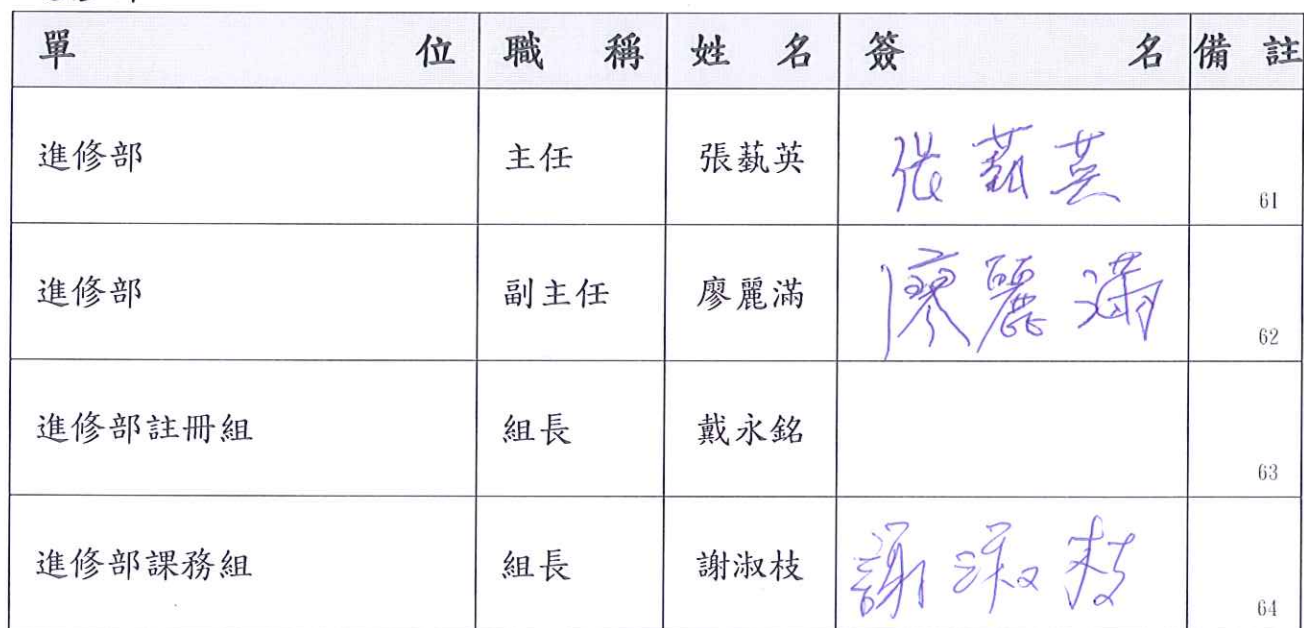 單位 職稱 姓名 簽名 備註
進修部 主任 張蓺英 張蓺英 61
進修部 副主任 廖麗滿 廖麗滿 62
進修部註冊組 組長 戴永銘 63
進修部課務組 組長 謝淑枝 謝淑枝 64